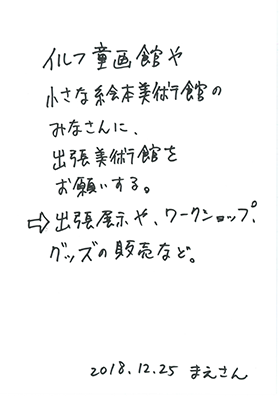 イルフ童画館や
小さな絵本美術館の
みなさんに、
出張美術館を
お願いする。
⇨出張展示や、ワークショップ、
グッズの販売など。
2018.12.25 まえさん